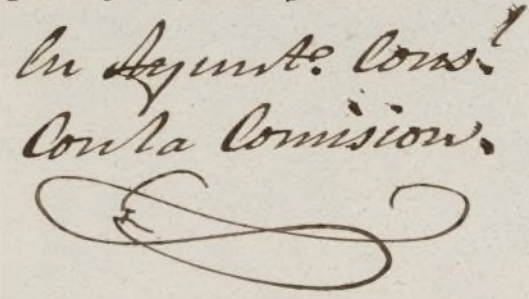 En Ayunto. Consl.
Con la Comision.